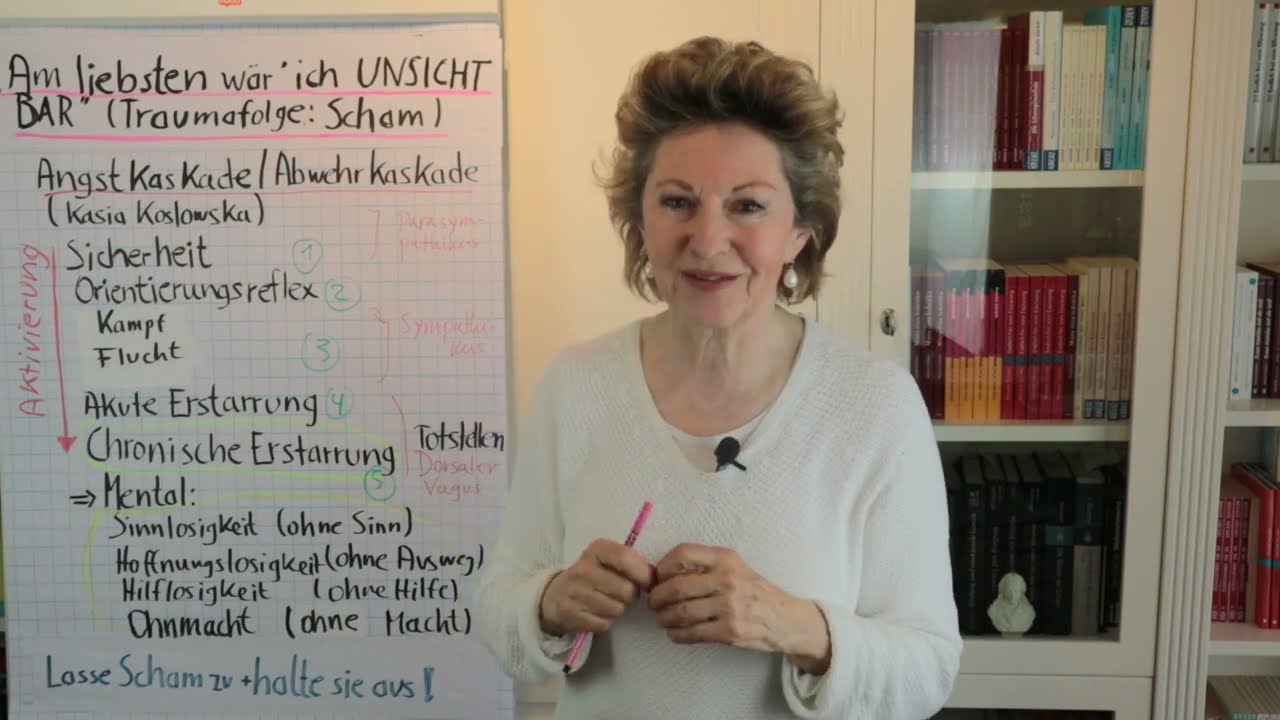 „Am liebsten wär' ich UNSICHT
BAR" (Traumafolge: Scham)
Angstkaskade/Abwehrkaskade
(Kasia Koslowska)
Parasym-
pathikus
Sicherheit 1
Orientierungsreflex 2
Kampf
Flucht
3
Sympathi-
kus
Aktivierung
Akute Erstarrung 4
Chronische Erstarrung
5
Totstellen
Dorsaler
Vagus
⇒ Mental:
Sinnlosigkeit (ohne Sinn)
Hoffnungslosigkeit (ohne Ausweg)
Hilflosigkeit (ohne Hilfe)
Ohnmacht (ohne Macht)
Lasse Scham zu + halte sie aus!